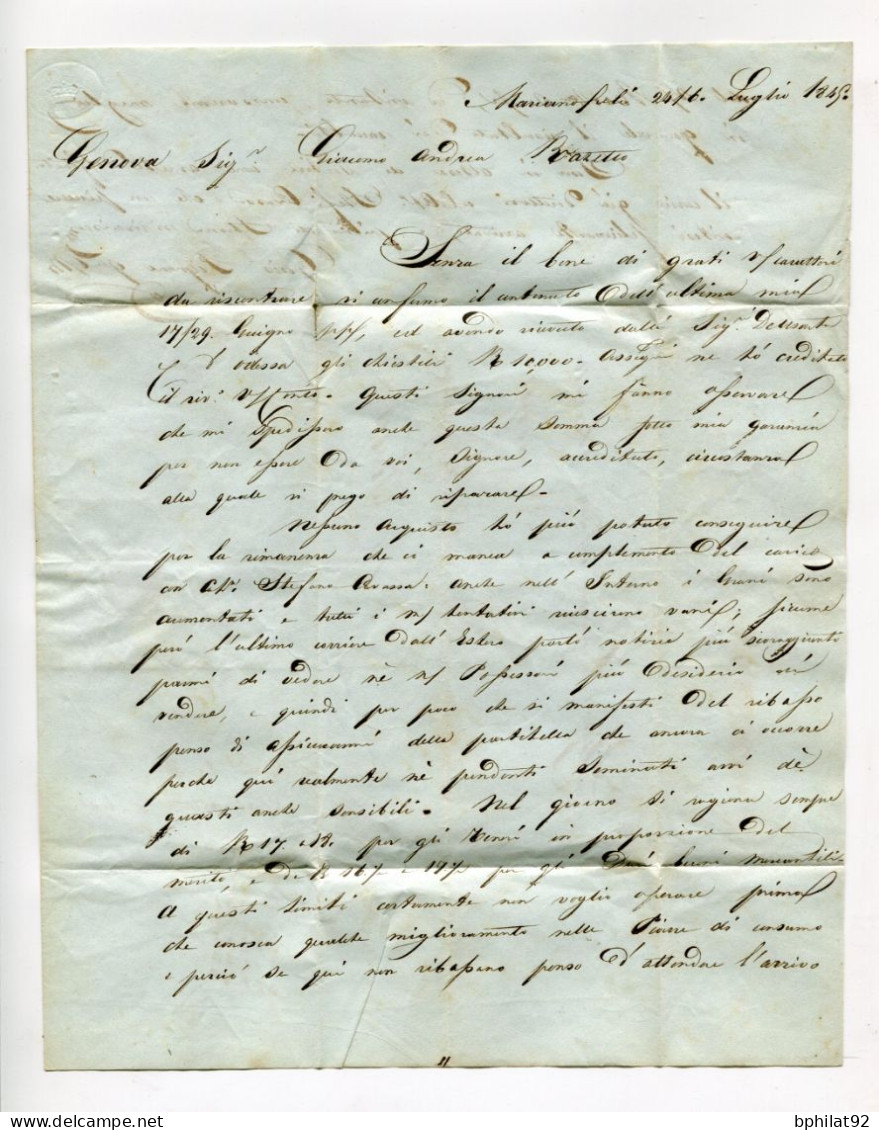 Luglio 1845.
Genova Sig.r Giacomo Andrea
Senza il bene di grati V/ caratteri
da riscontrare vi confermo il contenuto dell' ultima mia
17/29. Giugno p/p/, ed avendo ricevuto dalli Sig.ri
d' Odessa gli chiestili R 10,000.- Assegni ne hò creditato
il V/ Conto. Questi Signori mi fanno osservare
che mi spedissero anche questa somma sotto mia garanzia
per non essere da voi, Signore, accreditato, circostanza
alla quale vi prego di riparare.-
Nessuno acquisto hò più potuto conseguire
per la rimanenza che ci manca a complemento del carico
con Stefano anche nell' Interno i Grani sono
aumentati e tutti i m/ tentativi riuscirono vani; siccome
però l'ultimo corriere dall' Estero portò notizie più scoraggianti
parmi di vedere nè n/ Possessori più desiderio di
vendere, e quindi per poco che si manifesti del ribasso
penso di assicurarmi della partitella che ancora ci occorre
perche qui realmente nè pendenti Seminati
guasti anche sensibili. Nel giorno si ragiona sempre
di R 17. a 18. per gli Teneri in proporzione del
merito, e per gli Duri buoni mercantili.
A questi limiti certamente non voglio operare prima
che conosca qualche miglioramento nelle Piazze di consumo
e perciò se qui non ribassano penso d' attendere l'arrivo
bphilat92